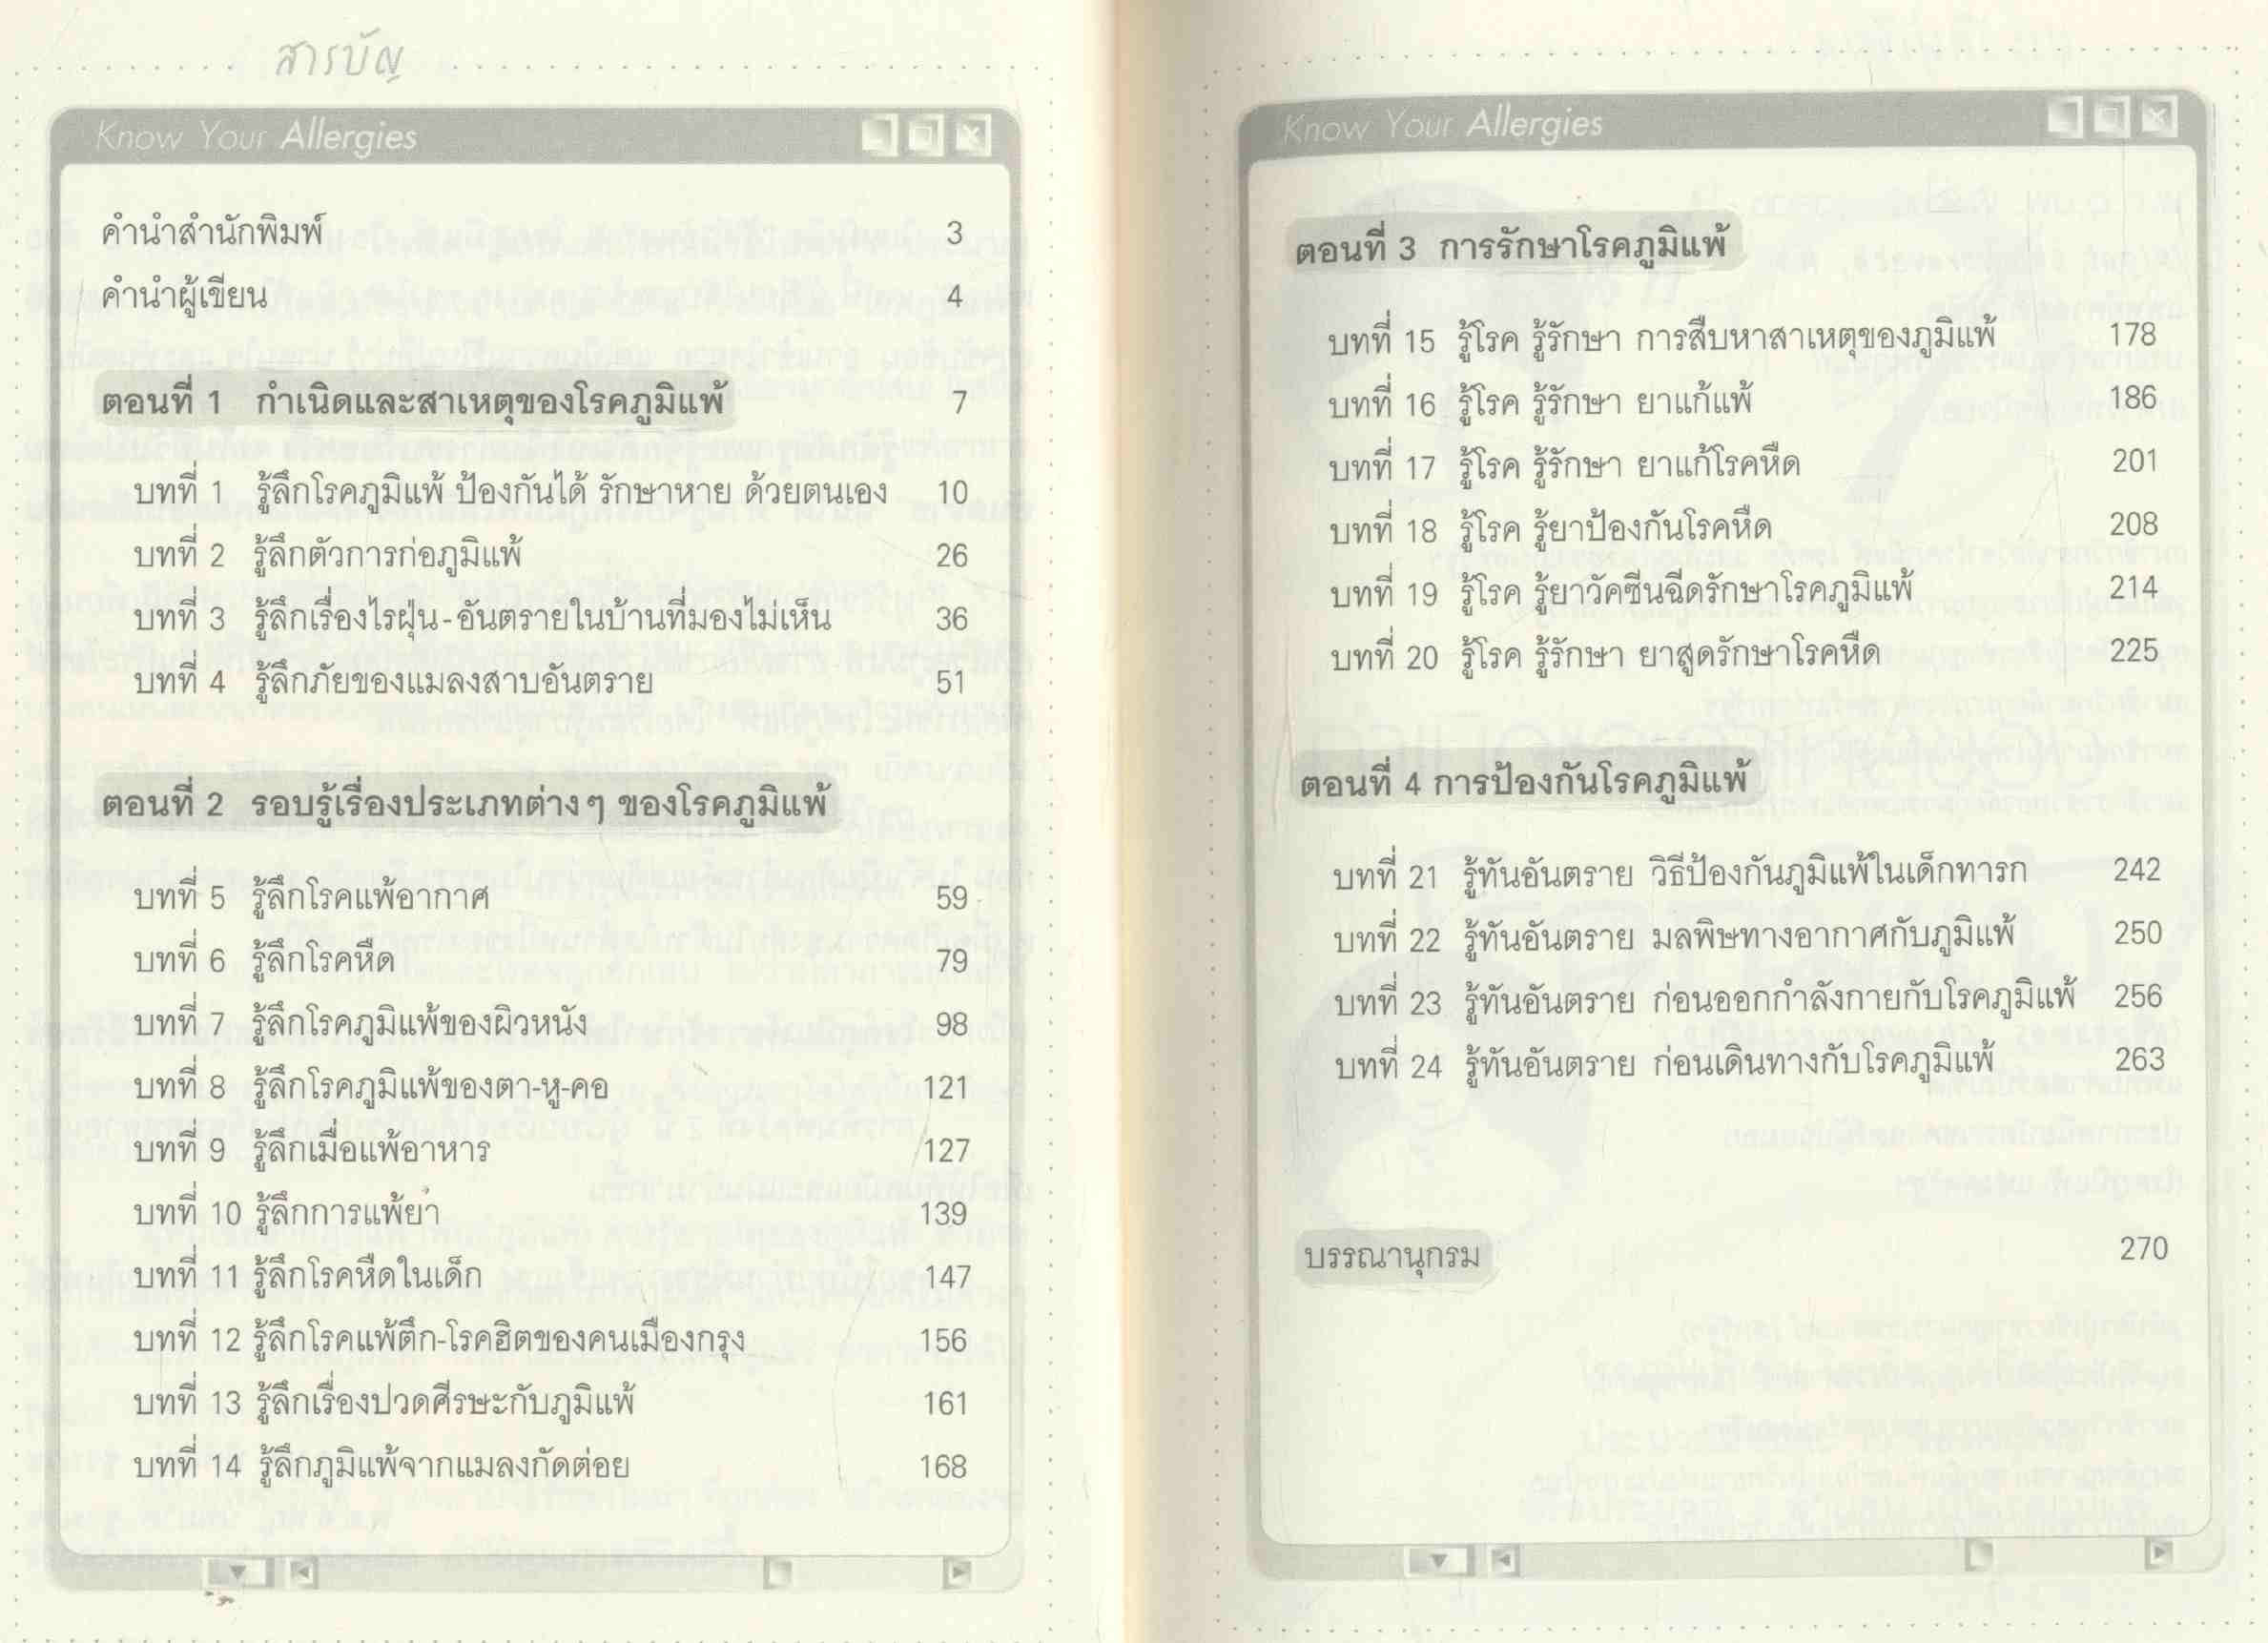 สารบัญ
Know Your Allergies
คำนำสำนักพิมพ์ 3
คำนำผู้เขียน 4
ตอนที่ 1 กำเนิดและสาเหตุของโรคภูมิแพ้ 7
บทที่ 1 รู้ลึกโรคภูมิแพ้ ป้องกันได้ รักษาหาย ด้วยตนเอง 10
บทที่ 2 รู้ลึกตัวการก่อภูมิแพ้ 26
บทที่ 3 รู้ลึกเรื่องไรฝุ่น-อันตรายในบ้านที่มองไม่เห็น 36
บทที่ 4 รู้ลึกภัยของแมลงสาบอันตราย 51
ตอนที่ 2 รอบรู้เรื่องประเภทต่างๆ ของโรคภูมิแพ้
บทที่ 5 รู้ลึกโรคแพ้อากาศ 59
บทที่ 6 รู้ลึกโรคหืด 79
บทที่ 7 รู้ลึกโรคภูมิแพ้ของผิวหนัง 98
บทที่ 8 รู้ลึกโรคภูมิแพ้ของตา-หู-คอ 121
บทที่ 9 รู้ลึกเมื่อแพ้อาหาร 127
บทที่ 10 รู้ลึกการแพ้ยา 139
บทที่ 11 รู้ลึกโรคหืดในเด็ก 147
บทที่ 12 รู้ลึกโรคแพ้ตึก-โรคฮิตของคนเมืองกรุง 156
บทที่ 13 รู้ลึกเรื่องปวดศีรษะกับภูมิแพ้ 161
บทที่ 14 รู้ลึกภูมิแพ้จากแมลงกัดต่อย 168
Know Your Allergies
ตอนที่ 3 การรักษาโรคภูมิแพ้
บทที่ 15 รู้โรค รู้รักษา การสืบหาสาเหตุของภูมิแพ้ 178
บทที่ 16 รู้โรค รู้รักษา ยาแก้แพ้ 186
บทที่ 17 รู้โรค รู้รักษา ยาแก้โรคหืด 201
บทที่ 18 รู้โรค รู้ยาป้องกันโรคหืด 208
บทที่ 19 รู้โรค รู้ยาวัคซีนฉีดรักษาโรคภูมิแพ้ 214
บทที่ 20 รู้โรค รู้รักษา ยาสูดรักษาโรคหืด 225
ตอนที่ 4 การป้องกันโรคภูมิแพ้
บทที่ 21 รู้ทันอันตราย วิธีป้องกันภูมิแพ้ในเด็กทารก 242
บทที่ 22 รู้ทันอันตราย มลพิษทางอากาศกับภูมิแพ้ 250
บทที่ 23 รู้ทันอันตราย ก่อนออกกำลังกายกับโรคภูมิแพ้ 256
บทที่ 24 รู้ทันอันตราย ก่อนเดินทางกับโรคภูมิแพ้ 263
บรรณานุกรม 270